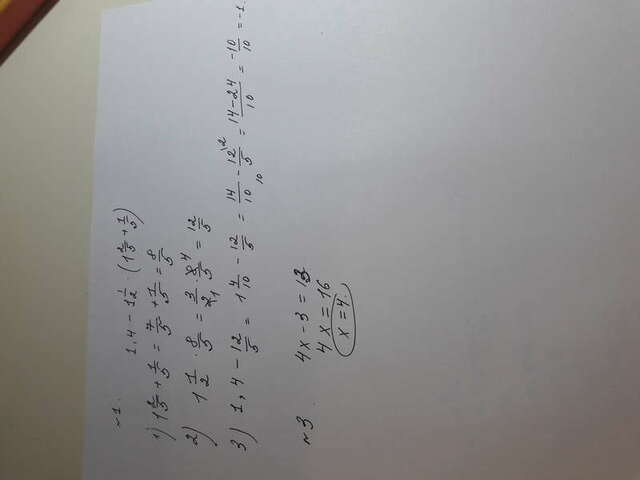 №1.
1,4 - 1 1/2 · (1 2/5 + 1/5)
1) 1 2/5 + 1/5 = 7/5 + 1/5 = 8/5
2) 1 1/2 · 8/5 = 3/2 1 · 8 4/5 = 12/5
3) 1,4 - 12/5 = 1 4/10 - 12/5 = 14/10 - 12 \2/5 10 = 14-24/10 = -10/10 = -1.
№3. 4x - 3 = 13
4x = 16
x = 4.